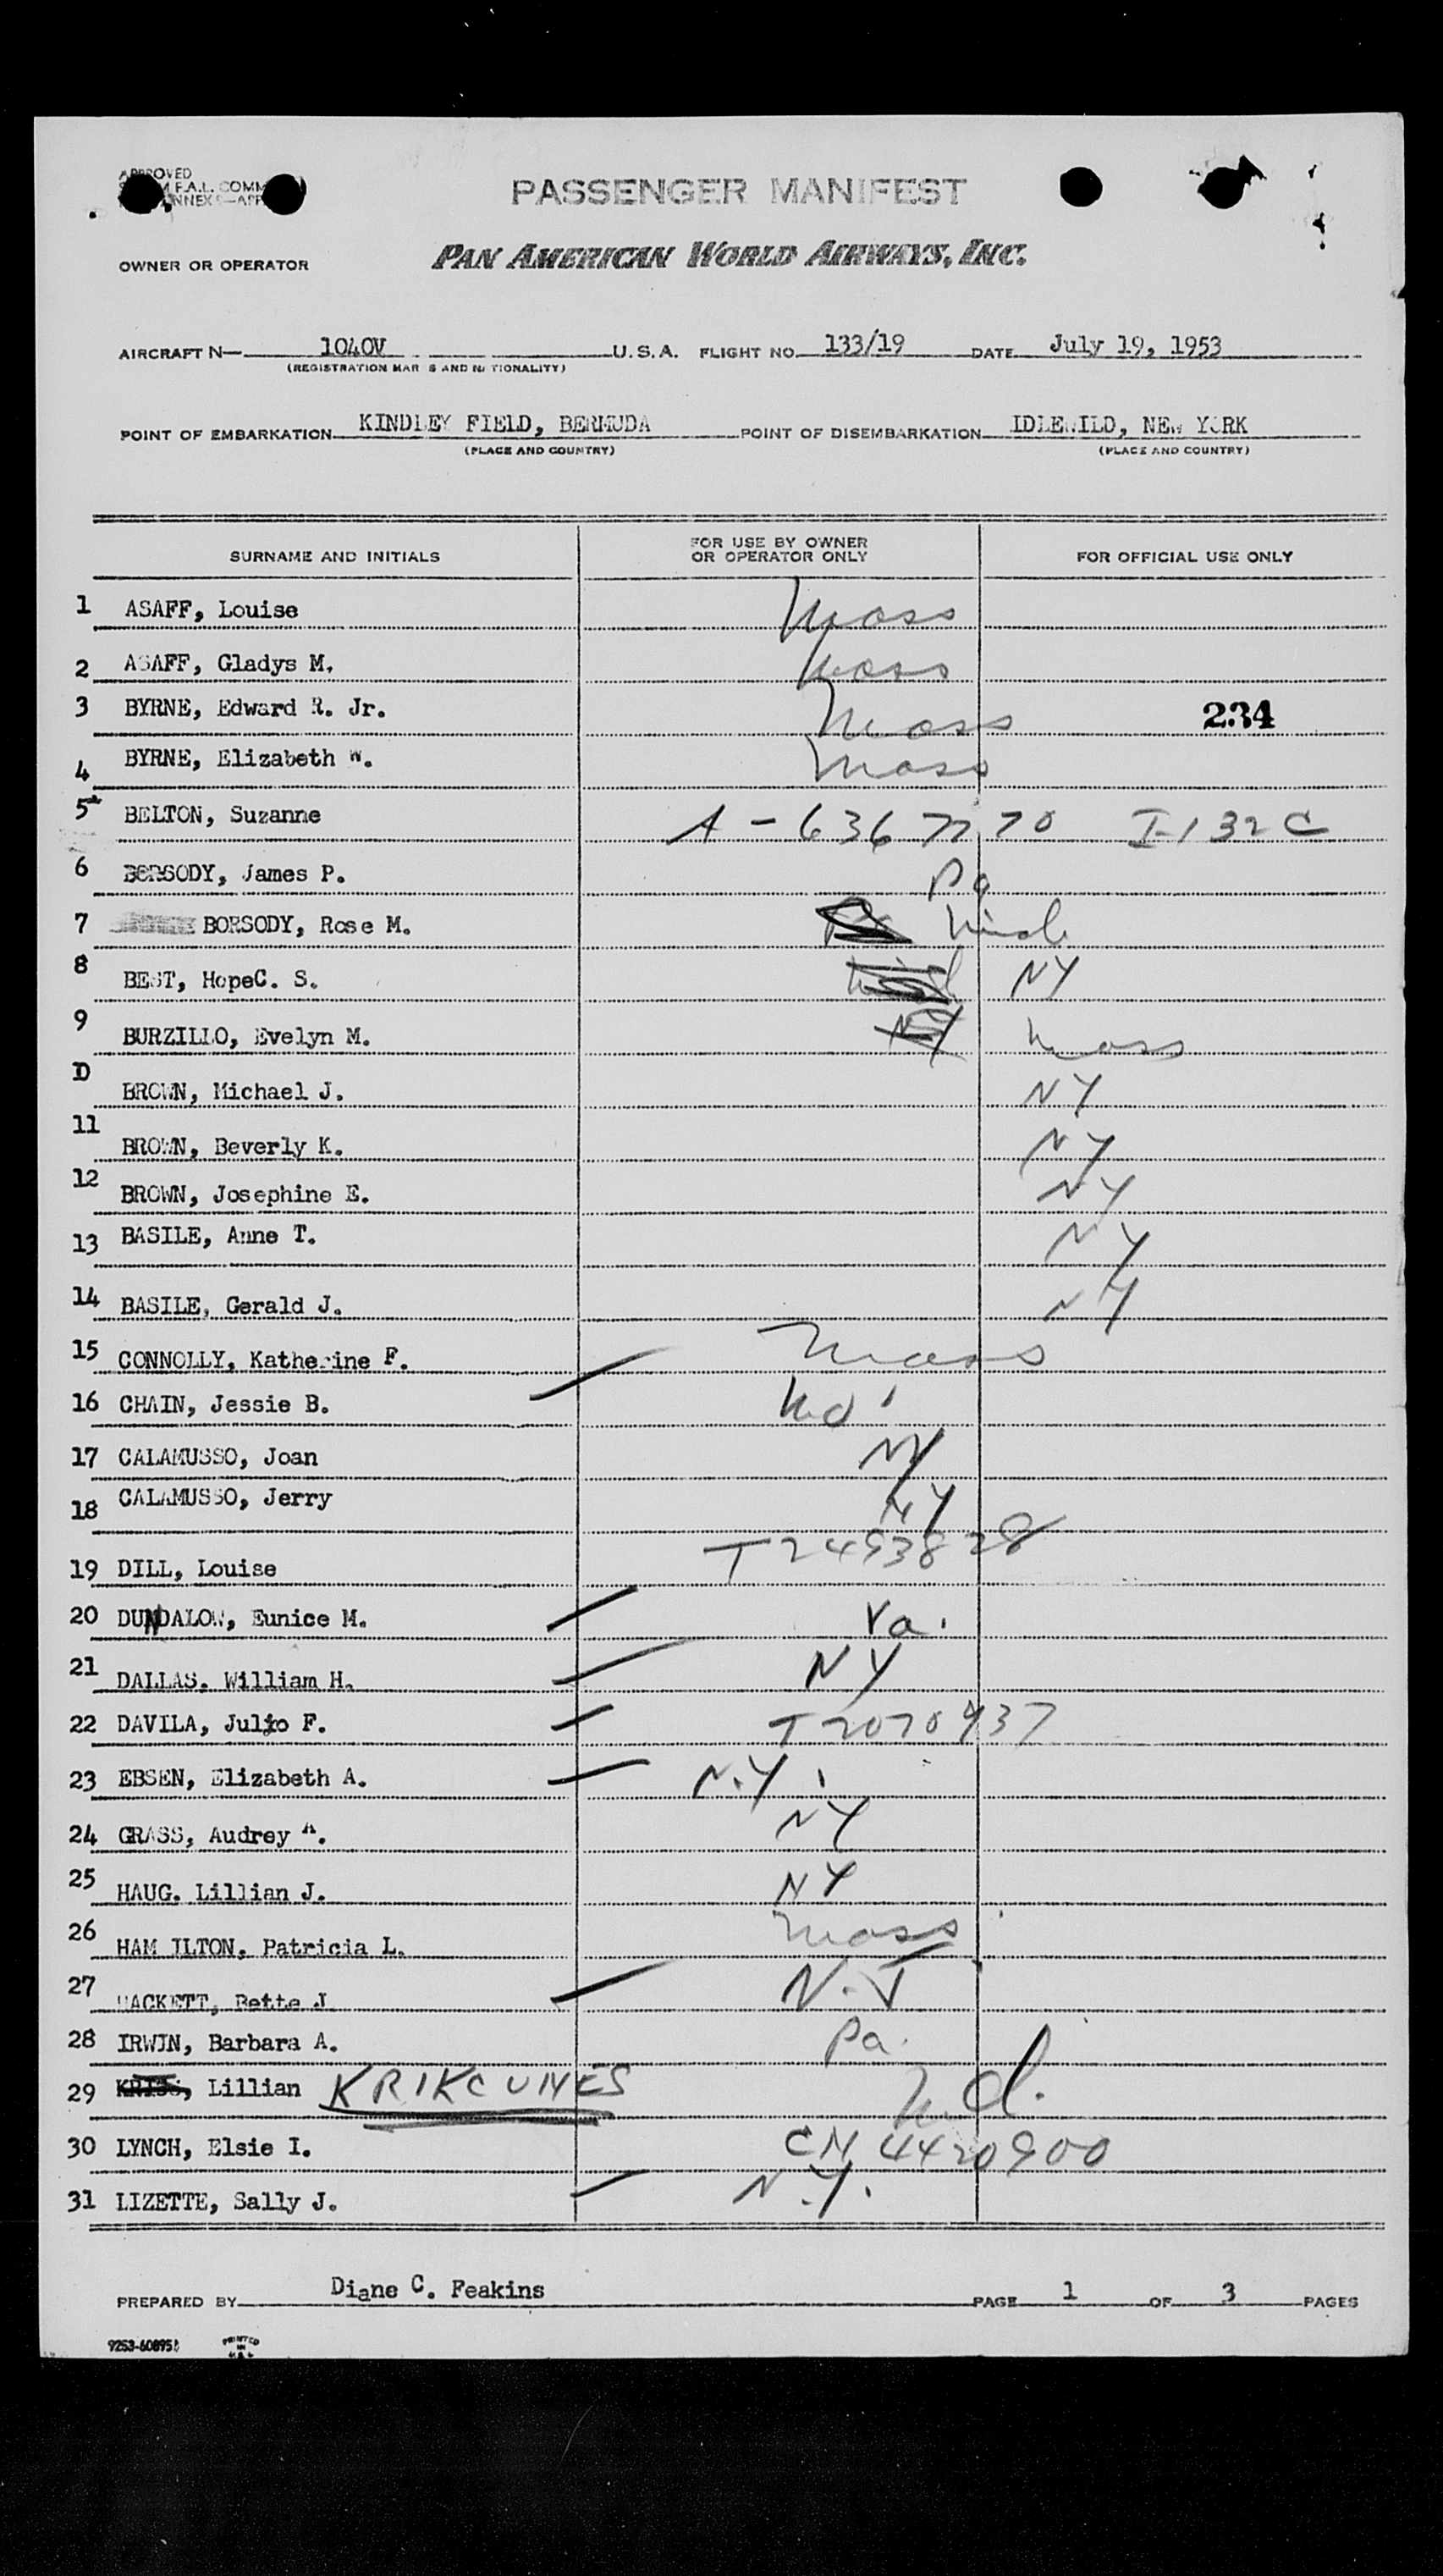 APPROVED
F.A.L. COMM
ANNEX
PASSENGER MANIFEST
OWNER OR OPERATOR PAN AMERICAN WORLD AIRWAYS, INC.
AIRCRAFT N— 1040V U.S.A. FLIGHT NO. 133/19 DATE July 19, 1953
(REGISTRATION MARKS AND NATIONALITY)
POINT OF EMBARKATION KINDLEY FIELD, BERMUDA POINT OF DISEMBARKATION IDLEWILD, NEW YORK
(PLACE AND COUNTRY) (PLACE AND COUNTRY)
SURNAME AND INITIALS FOR USE BY OWNER OR OPERATOR ONLY FOR OFFICIAL USE ONLY
1 ASAFF, Louise Mass
2 ASAFF, Gladys M. Mass
3 BYRNE, Edward R. Jr. Mass 234
4 BYRNE, Elizabeth W. Mass
5 BELTON, Suzanne A-6367770 I-132C
6 BORSODY, James P. Pa
7 BORSODY, Rose M. Mich
8 BEST, HopeC. S. NY
9 BURZILLO, Evelyn M. NY Mass
D BROWN, Michael J. NY
11 BROWN, Beverly K. NY
12 BROWN, Josephine E. NY
13 BASILE, Anne T. NY
14 BASILE, Gerald J. NY
15 CONNOLLY, Katherine F. Mass
16 CHAIN, Jessie B. Mo
17 CALAMUSSO, Joan NY
18 CALAMUSSO, Jerry NY
19 DILL, Louise T2493828
20 DUNDALOW, Eunice M. Va.
21 DALLAS. William H. NY
22 DAVILA, Julio F. T2070937
23 EBSEN, Elizabeth A. N.Y.
24 GRASS, Audrey A. NY
25 HAUG. Lillian J. NY
26 HAM ILTON, Patricia L. Mass
27 HACKETT, Bette J. N.J
28 IRWIN, Barbara A. Pa.
29 KRISS, Lillian KRIKCUNES Md.
30 LYNCH, Elsie I. CN 4420900
31 LIZETTE, Sally J. N.Y.
PREPARED BY Diane C. Feakins PAGE 1 OF 3 PAGES
PRINTED IN U.S.A.